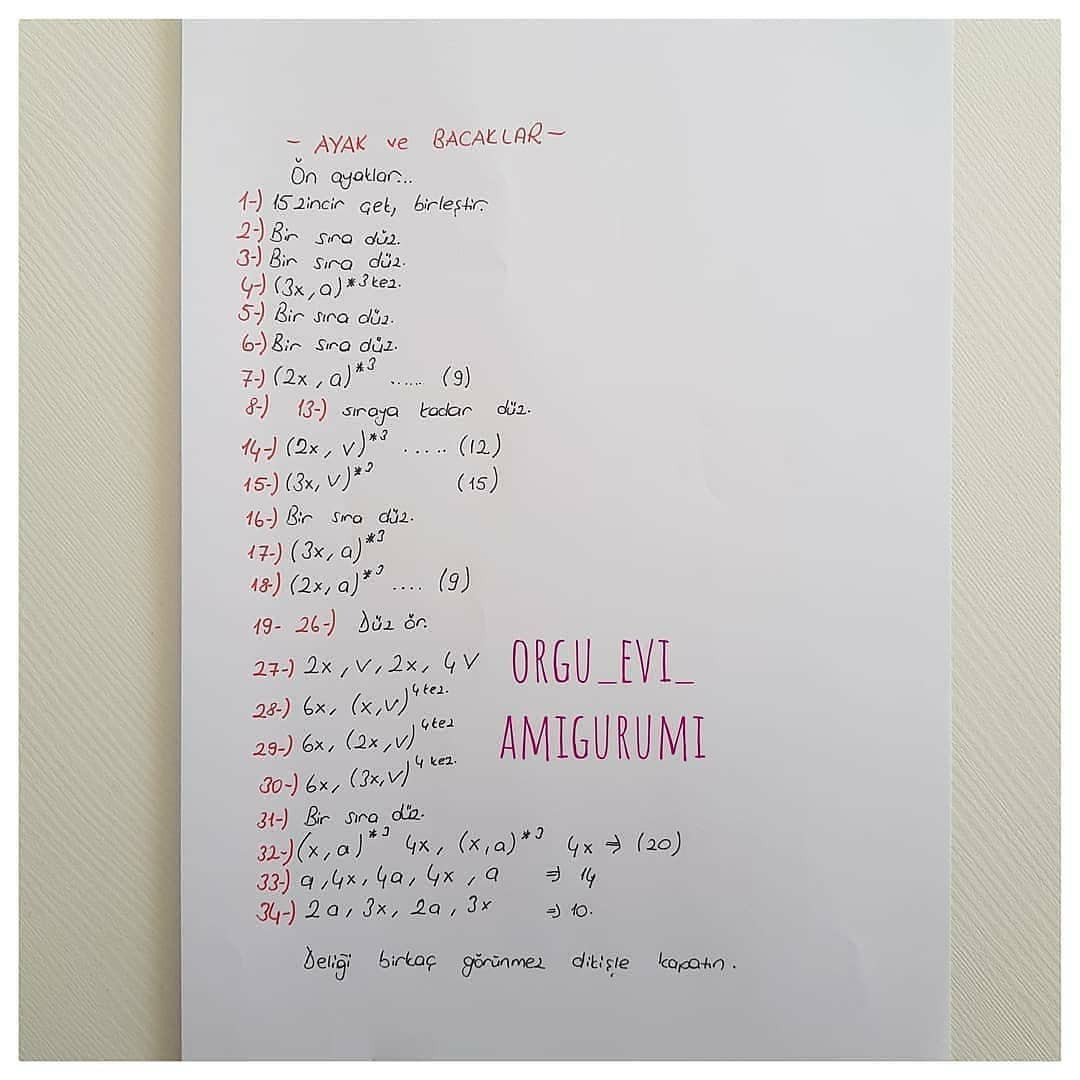 - AYAK ve BACAKLAR -
Ön ayaklar...
1-) 15 zincir çek, birleştir.
2-) Bir sıra düz.
3-) Bir sıra düz.
4-) (3x, a)*3 kez.
5-) Bir sıra düz.
6-) Bir sıra düz.
7-) (2x, a)*3 ...... (9)
8-) 13-) sıraya kadar düz.
14-) (2x, v)*3 ..... (12)
15-) (3x, v)*3 (15)
16-) Bir sıra düz.
17-) (3x, a)*3
18-) (2x, a)*3 .... (9)
19- 26-) Düz ör.
27-) 2x, v, 2x, 4v
28-) 6x, (x, v) 4 kez.
29-) 6x, (2x, v) 4 kez
30-) 6x, (3x, v) 4 kez.
31-) Bir sıra düz.
32-) (x, a)*3 4x, (x, a)*3 4x ⇒ (20)
33-) a, 4x, 4a, 4x, a ⇒ 14
34-) 2a, 3x, 2a, 3x ⇒ 10.
Deliği birkaç görünmez dikişle kapatın.
ORGU_EVI_
AMIGURUMI